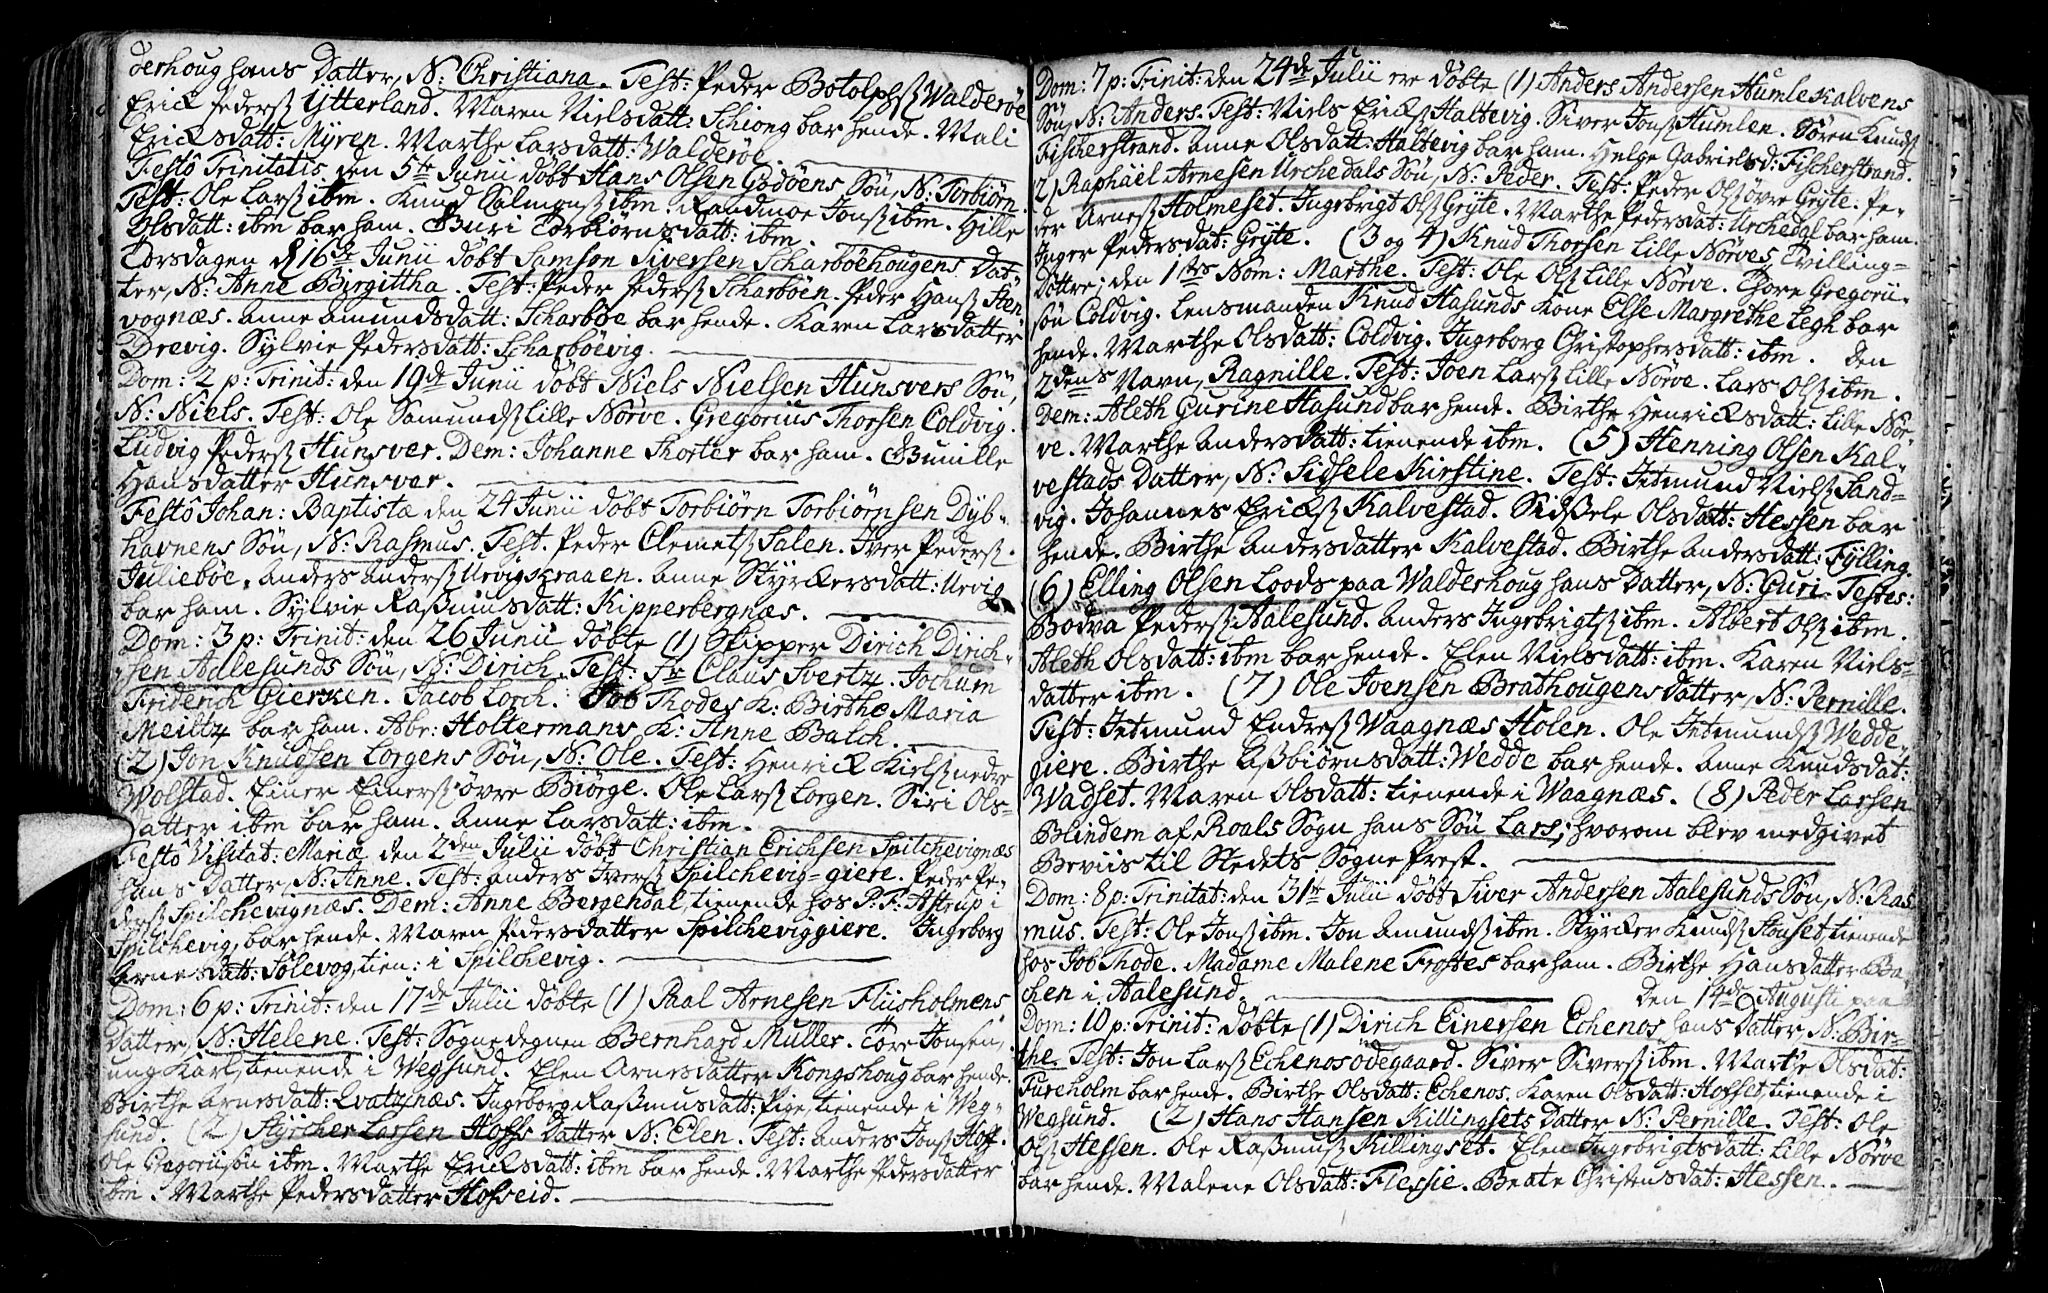 derhoug hans Datter, N: Christiana. Test: Peder Botolphs Walderöe
Erick Peders Ytterland. Maren Nielsdatt: Schiong bar hende. Mali
Ericksdatt: Myren. Marthe Larsdatt: Walderöe.
Festô Trinitatis den 5te Junii döbt Hans Olsen Godöens Sön, N: Torbiörn.
Test: Ole Lars ibm. Knud ibm. Randmoe Jons ibm. Hille
Olsdatt: ibm bar ham. Guri Torbiörnsdatt: ibm.
Torsdagen d 16de Junii döbt Samson Siversen Scharböehougens Dat-
ter, N: Anne Birgittha. Test: Peder Peders Scharböen. Peder Hans Sten
vognæs. Anne Amundsdatt: Scharböe bar hende. Karen Larsdatter
Drevig. Sylvie Pedersdatt: Scharböevig.
Dom: 2 p: Trinit: den 19de Junii döbt Niels Nielsen Hunsvers Sön,
N: Niels. Test: Ole Samunds Lille Nörve. Gregorius Thorsen Coldvig.
Ludvig Peders Hunsver. Dem: Johanne Thorter bar ham. Gunille
Hansdatter Hunsver.
Festô Johan: Baptistæ den 24 Junii döbt Torbiörn Torbiörnsen Dyb-
havnens Sön, N: Rasmus. Test. Peder Clemets Salen. Iver Peders
Julieböe. Anders Anders Urvigskraaen. Anne Styrckersdatt: Urvig
bar ham. Sylvie Rasmusdatt: Kipperbergnæs.
Dom: 3 p: Trinit: den 26 Junii döbte (1) Skipper Dirich Dirich-
sen Aalesunds Sön, N: Dirich. Test: Sr Claus Svertz. Jochum
Friderich Giersen. Jacob Lorch. Job Thodes K: Birthe Maria
Meiltz bar ham. Abr: Holtermans K: Anne Balch.
(2) Jon Knudsen Lorgens Sön, N: Ole. Test: Henrick Kiels nedre
Wolstad. Einer Einers övre Biörge. Ole Lars Lorgen. Siri Ols-
datter ibm bar ham. Anne Larsdatt: ibm.
Festô Visitat: Mariæ den 2den Julii döbt Christian Erichsen Spilchevignæs
hans Datter, N: Anne. Test: Anders Ivers Spilchevig-giere. Peder Pe-
ders Spilchevignæs. Dem: Anne Bergendal, tienende hos P. F. Astrup i
Spilchevig, bar hende. Maren Pedersdatter Spilcheviggiere. Ingeborg
Arnesdatt: Solevog, tien: i Spilchevig.
Dom: 6 p: Trinit: den 17de Julii döbte (1) Paal Arnesen Fliisholmens
Datter, N: Helene. Test: Sognedegnen Bernhard Muller. Tore Jonsen,
ung Karl, tienende i Wegsund. Elen Arnesdatter Kongshoug bar hende.
Birthe Arnesdatt: Qvatznæs. Ingeborg Rasmusdatt: Pige, tienende i Weg-
sund. (2) Styrcher Larsen Hoffs Datter N: Elen. Test: Anders Jons Hoff.
Ole Gregoriisön ibm. Marthe Ericksdatt: ibm bar hende. Marthe Pedersdatter
ibm. Marthe Pedersdatter Hofseid.
Dom: 7 p: Trinit: den 24de Julii ere döbte (1) Anders Andersen Humlekalvens
Sön, N: Anders. Test: Niels Ericks Haltevig. Siver Jons Humlen. Sören Knuds
Fischerstrand. Anne Olsdatt: Haltevig bar ham. Helge Gabrielsd: Fischerstrand.
(2) Raphäel Arnesen Urchedals Sön, N: Peder. Test: Peder Ols övre Gryte. Pe-
der Arnes Holmeset. Ingebrigt Ols Gryte. Marthe Pedersdat: Urchedal bar ham.
Inger Pedersdat: Gryte. (3 og 4) Knud Thorsen Lille Nörves Tvilling-
Döttre; den 1stes Nom: Marthe. Test: Ole Ols Lille Nörve. Thore Gregorii-
sön Coldvig. Lensmanden Knud Hasunds Kone Else Margrethe Legh bar
hende. Marthe Olsdatt: Coldvig. Ingeborg Christophersdatt: ibm. Den
2dens Navn, Ragnille. Test: Joen Lars Lille Nörve. Lars Ols ibm.
Dem: Aleth Gurine Hasund bar hende. Birthe Henricksdatt: Lille Nör-
ve. Marthe Andersdatt: tienende ibm. (5) Henning Olsen Kal-
vestads Datter, N: Sidsele Kirstine. Test: Jetmund Niels Sand-
vig. Johannes Ericks Kalvestad. Sidsele Olsdatt: Hessen bar
hende. Birthe Andersdatter Kalvestad. Birthe Andersdatt: Fylling.
(6) Elling Olsen Loods paa Walderhoug hans Datter, N: Guri. Testes:
Bodva Peders Aalesund. Anders Ingebrigts ibm. Albert Ols ibm.
Aleth Olsdatt: ibm bar hende. Elen Nielsdatt: ibm. Karen Niels-
datter ibm. (7) Ole Joensen Brathougens Datter, N: Pernille.
Test: Jetmund Enders Waagnæs Holen. Ole Jetmunds Wedde-
giere. Birthe Asbiörnsdatt: Wedde bar hende. Anne Knudsdat:
Wadset. Maren Olsdatt: tienende i Waagnæs. (8) Peder Larsen
Blindem af Roals Sogn hans Sön Lars; hvorom blev medgivet
Beviis til Stedets Sogne Prest.
Dom: 8 p: Trinitat: den 31te Julii döbt Siver Andersen Aalesunds Sön, N: Ras
mus. Test: Ole Jons ibm. Jon Amunds ibm. Styrcker Knuds Honset, tienende
hos Job Thode. Madame Malene Frostes bar ham. Birthe Hansdatter Ba-
chen i Aalesund. Den 14de Augusti paa
Dom: 10 p: Trinit: döbte (1) Dirich Einersen Echenos hans Datter, N: Bir-
the. Test: Jon Lars Echenosödegaard. Siver Sivers ibm. Marthe Olsdat:
Tureholm bar hende. Birthe Olsdatt: Echenos. Karen Olsdatt: Hofset, tienende i
Wegsund. (2) Hans Hansen Killingsets Datter N: Pernille. Test: Ole
Ols Hessen. Ole Rasmus Killingset. Elen Ingebrigtsdatt: Lille Nörve
bar hende. Malene Olsdatt: Flessie. Beate Christensdat: Hessen.